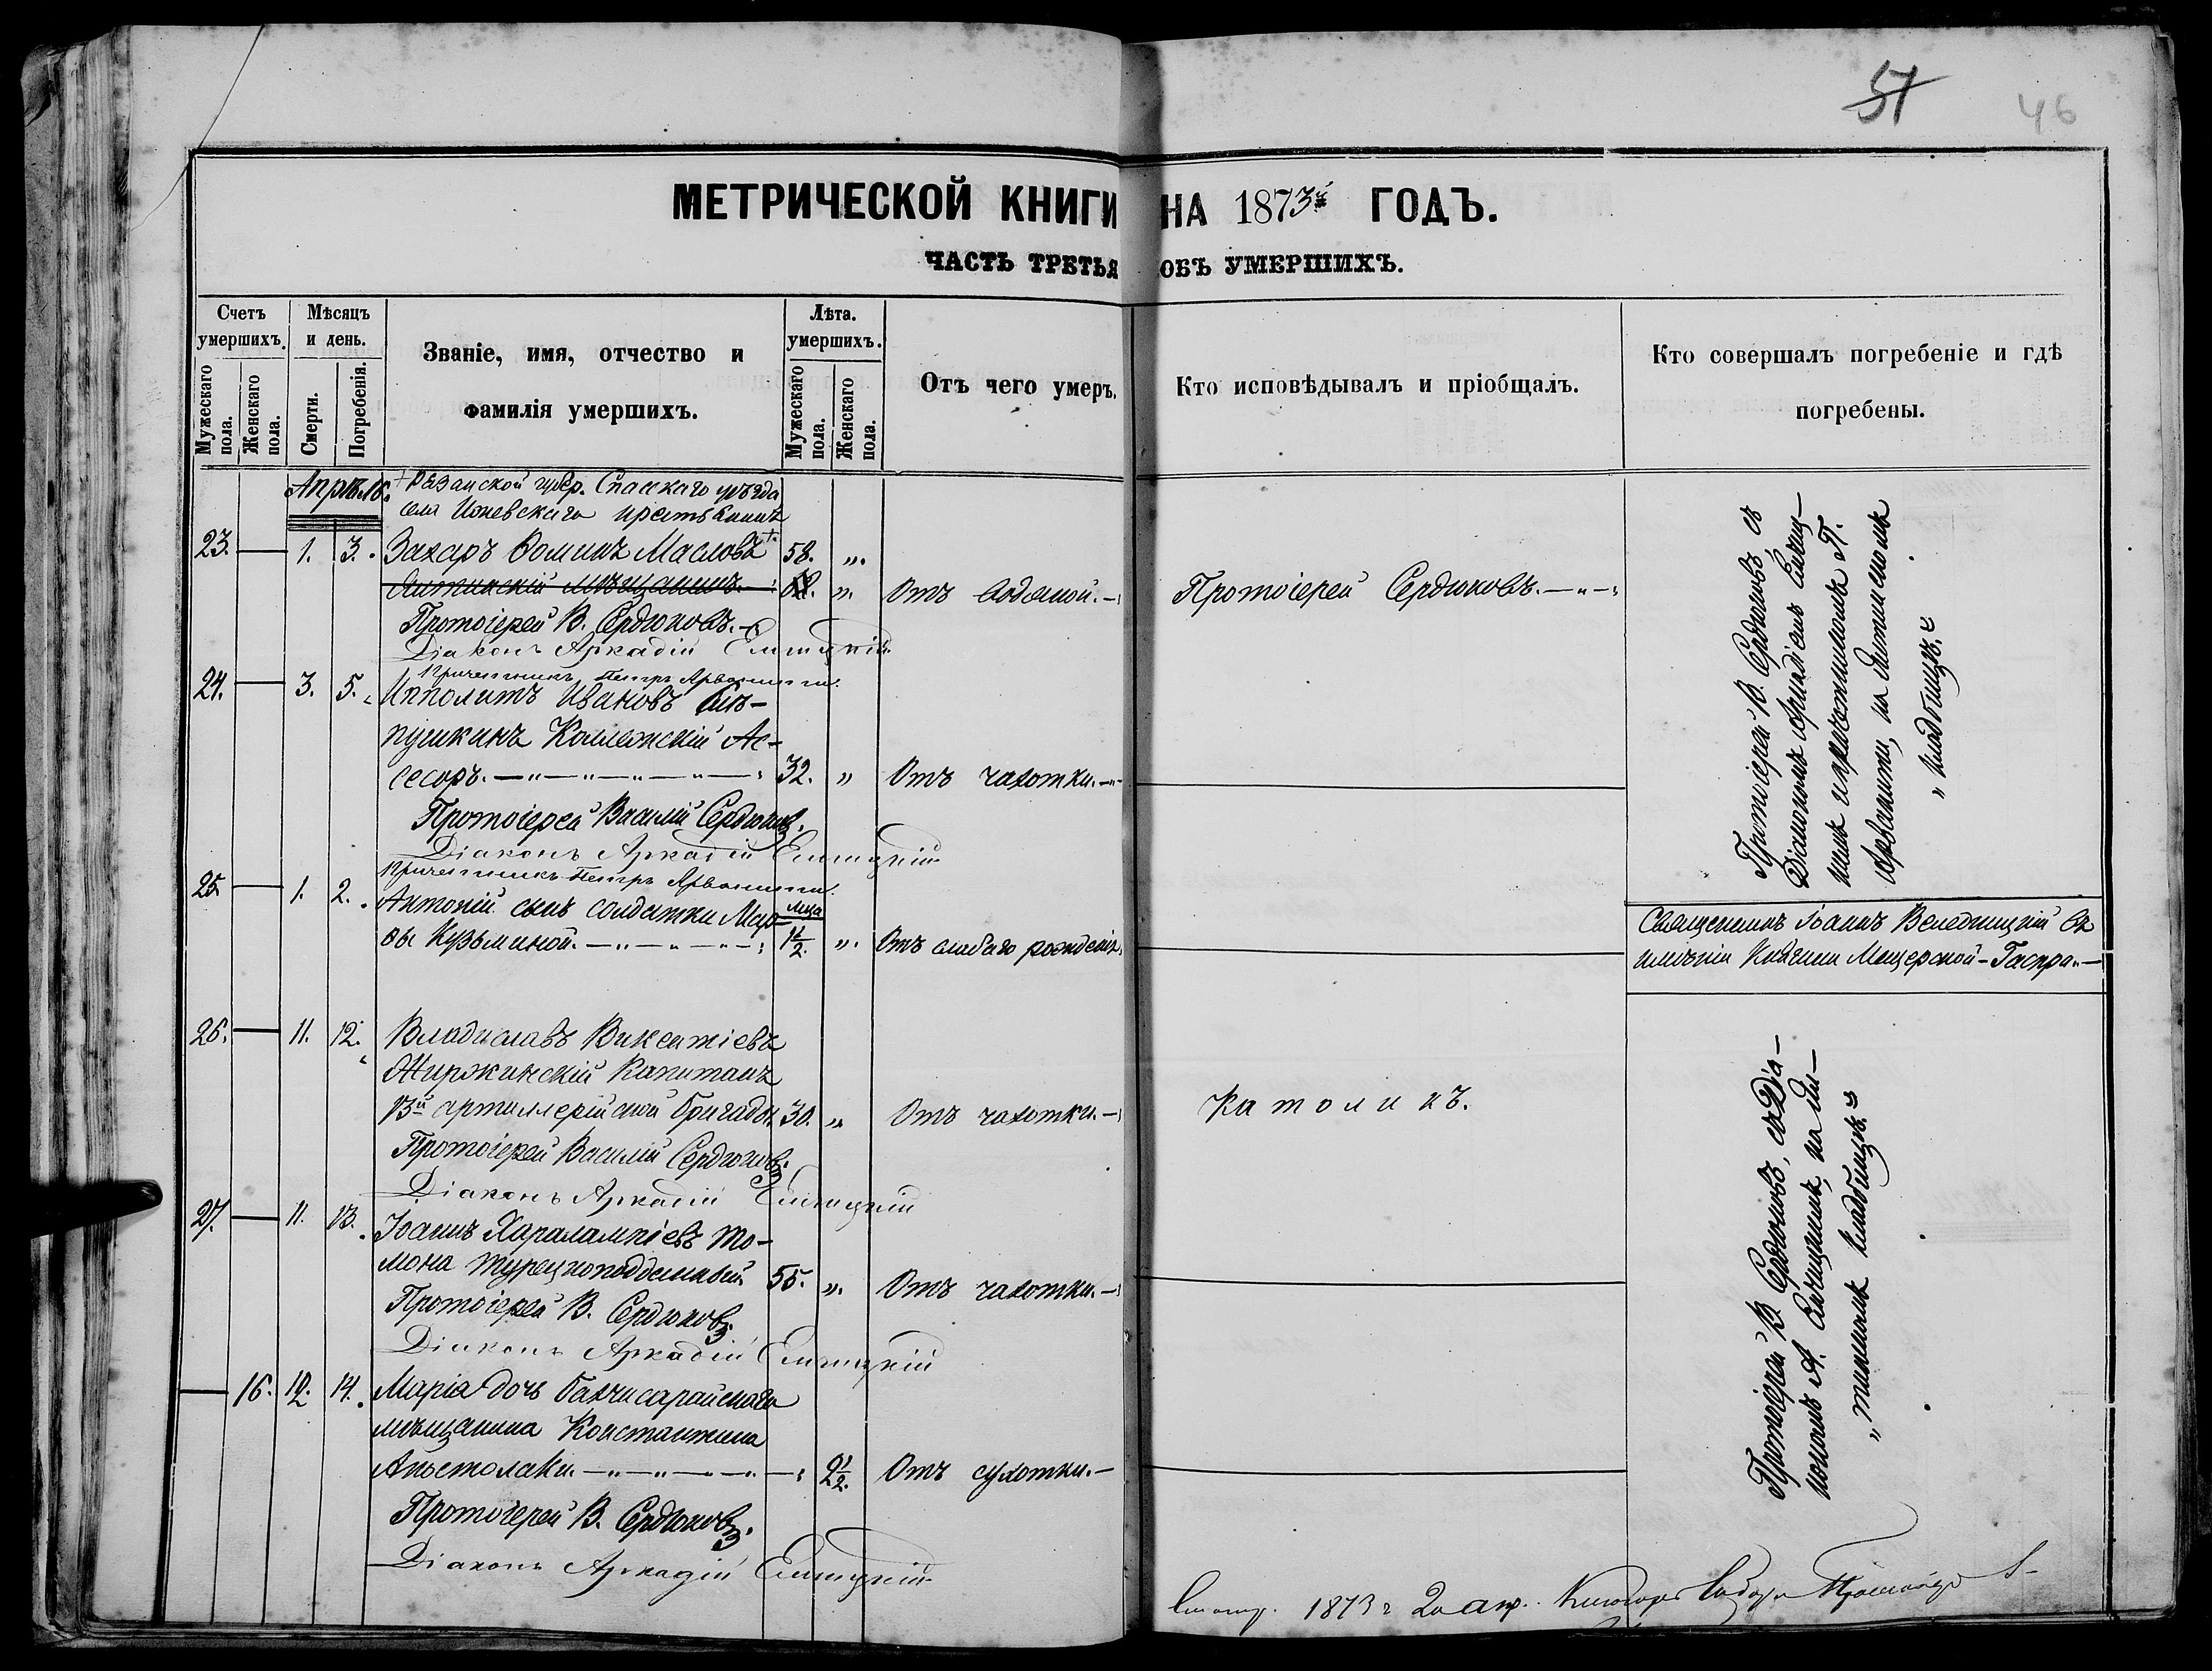 51
46
МЕТРИЧЕСКОЙ КНИГИ НА 1873й ГОДЪ.
ЧАСТЬ ТРЕТЬЯ ОБЪ УМЕРШИХЪ.
Счетъ умершихъ.
Мужескаго пола.
Женскаго пола.
Мѣсяцъ и день.
Смерти.
Погребенія.
Званіе, имя, отчество и
фамилія умершихъ.
Лѣта. умершихъ.
Мужескаго пола.
Женскаго пола.
Отъ чего умеръ.
Кто исповѣдывалъ и пріобщалъ.
Кто совершалъ погребеніе и гдѣ
погребены.
Апрѣль.
+ Рязанской губер. Спасскаго уѣзда
села Ижевскаго крестьянинъ
23. — 1. 3. Захаръ Ѳоминъ Масловъ +. 58. „.
Ялтинскій мѣщанинъ. „. Отъ водяной. — Протоіерей Сердюковъ. — „ —
Протоіерей В. Сердюковъ.
Діаконъ Аркадій Синицкій
Причетникъ Петръ Арванити.
24. — 3. 5. Ипполитъ Ивановъ
пушкинъ Коллежскій Ас-
сесоръ. — „ — „ — „ — „ — 32. „ Отъ чахотки. — „
Протоіерей Василій Сердюковъ.
Діаконъ Аркадій Синицкій
Причетникъ Петръ Арванити.
25. — 1. 2. Антоній сынъ солдатки Мар- мца
ѳы Кузьминой. — „ — „ — „ — 1½ „. Отъ слабаго рожденія.
26. — 11. 12. Владиславъ Викентіевъ
Жиржинскій Капитанъ
13й артиллерійской бригады. 30. „. Отъ чахотки. — Католикъ.
Протоіерей Василій Сердюковъ.
Діаконъ Аркадій Синицкій
27. — 11. 13. Іоаннъ Харалампіевъ То-
мона турецкоподданный 55. „. Отъ чахотки. —
Протоіерей В. Сердюковъ.
Діаконъ Аркадій Синицкій
— 16. 12. 14. Марія дочь бахчисарайскаго
мѣщанина Константина
Апостолаки. — „ — „ — „ — „ — 2½. Отъ сухотки. —
Протоіерей В. Сердюковъ.
Діаконъ Аркадій Синицкій
Протоіерей В Сердюковъ съ
Діакономъ Аркадіемъ Синиц-
кимъ и причетникомъ П.
Арванити, на Ялтинскомъ
„ кладбищѣ. „
Священникъ Іоаннъ Венедицкій въ
имѣніи Княгини Мещерской - Гаспра. —
Протоіерей В Сердюковъ, съ Діа-
кономъ А. Синицкимъ, на Ял-
„ тинскомъ кладбищѣ. „
1873 г 20 апр.